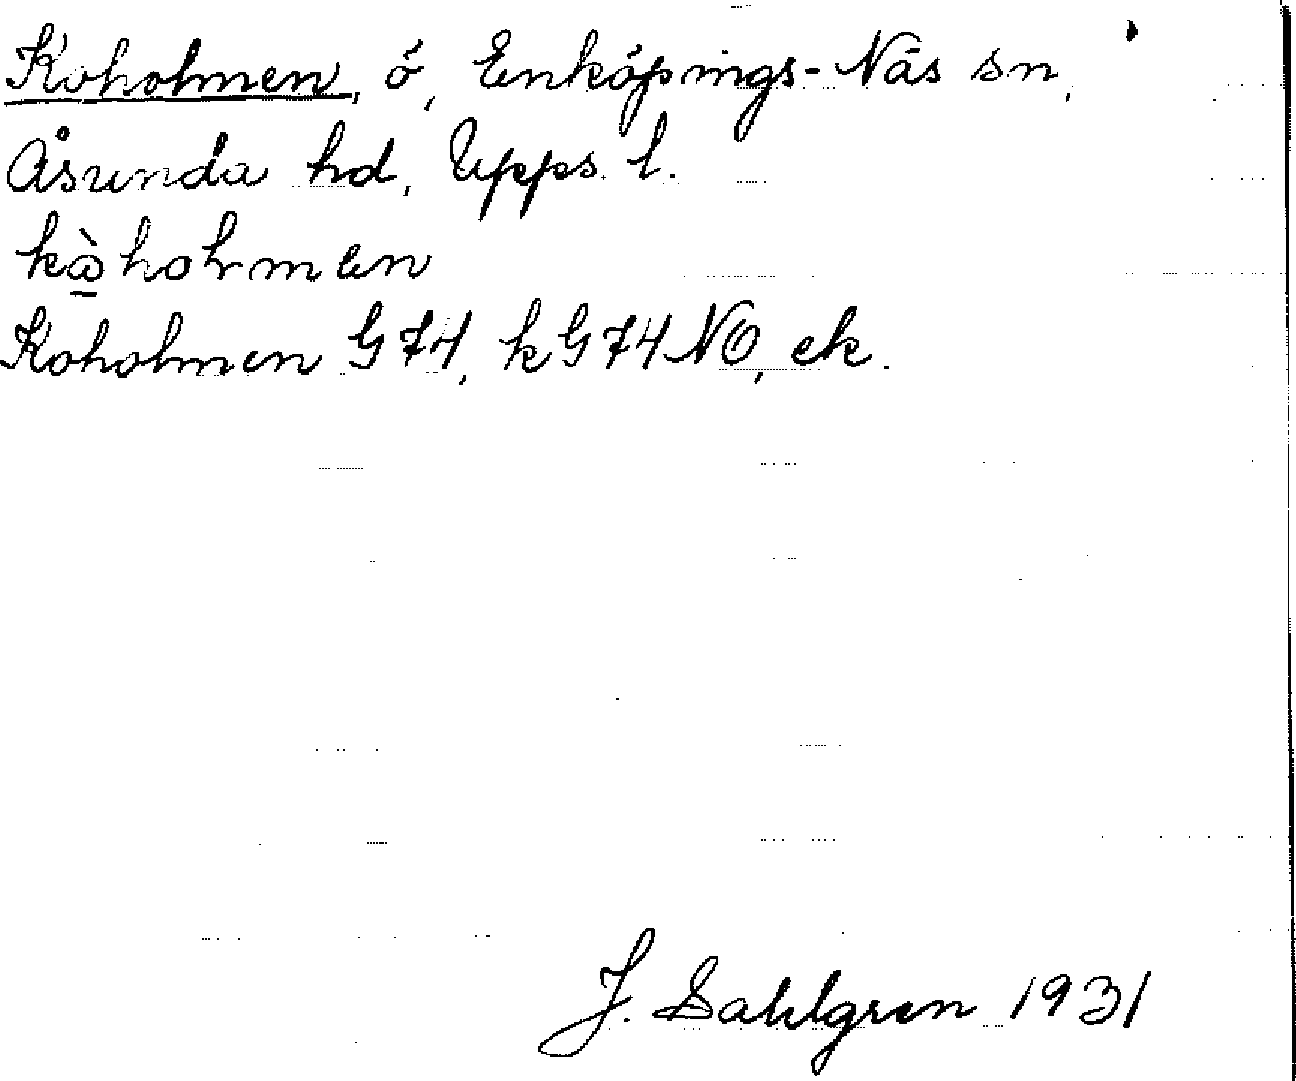 Koholmen, ö, Enköpings-Näs sn,
Åsunda hd, Upps. l.
Koholmen G74, k G74 NO, ek.
J. Sahlgren 1931